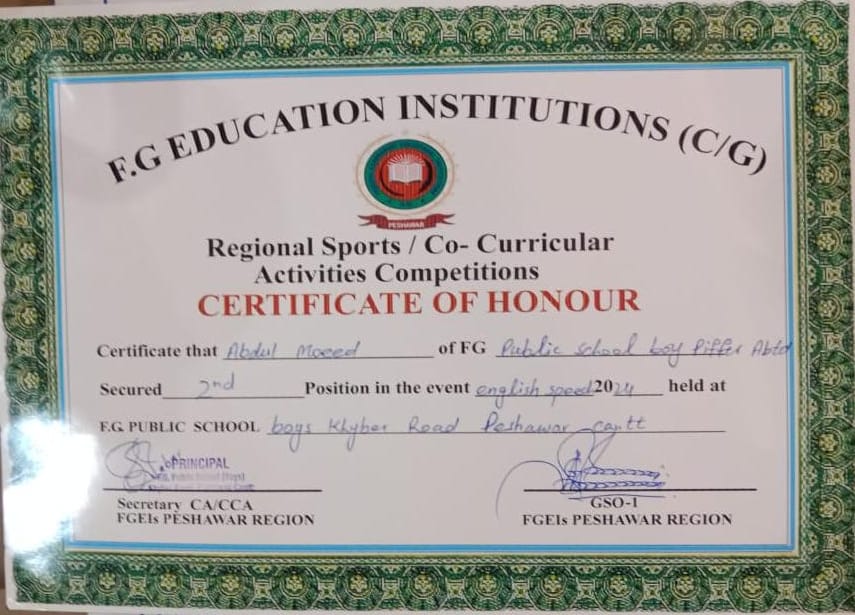 F.G EDUCATION INSTITUTIONS (C/G)
PESHAWAR
Regional Sports / Co- Curricular
Activities Competitions
CERTIFICATE OF HONOUR
Certificate that Abdul Moeed of FG Public school boy Piffer Abtd
Secured 2nd Position in the event english speed 2024 held at
F.G. PUBLIC SCHOOL boys Khyber Road Peshawar cantt
PRINCIPAL
F.G. Public School (Boys)
Secretary CA/CCA
FGEIs PESHAWAR REGION
GSO-I
FGEIs PESHAWAR REGION